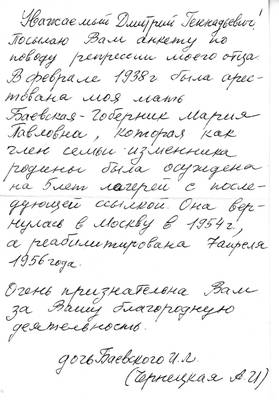 Уважаемый Дмитрий Геннадьевич!
Посылаю Вам анкету по
поводу репрессии моего отца.
В феврале 1938г была арес-
тована моя мать
Баевская-Говерник Мария
Павловна, которая как
член семьи изменника
родины была осуждена
на 5 лет лагерей с после-
дующей ссылкой. Она вер-
нулась в Москву в 1954г,
а реабилитирована 7 апреля
1956 года.
Очень признательна Вам
за Вашу благородную
деятельность.
дочь Баевского И.Л.
(Чернецкая А.И)